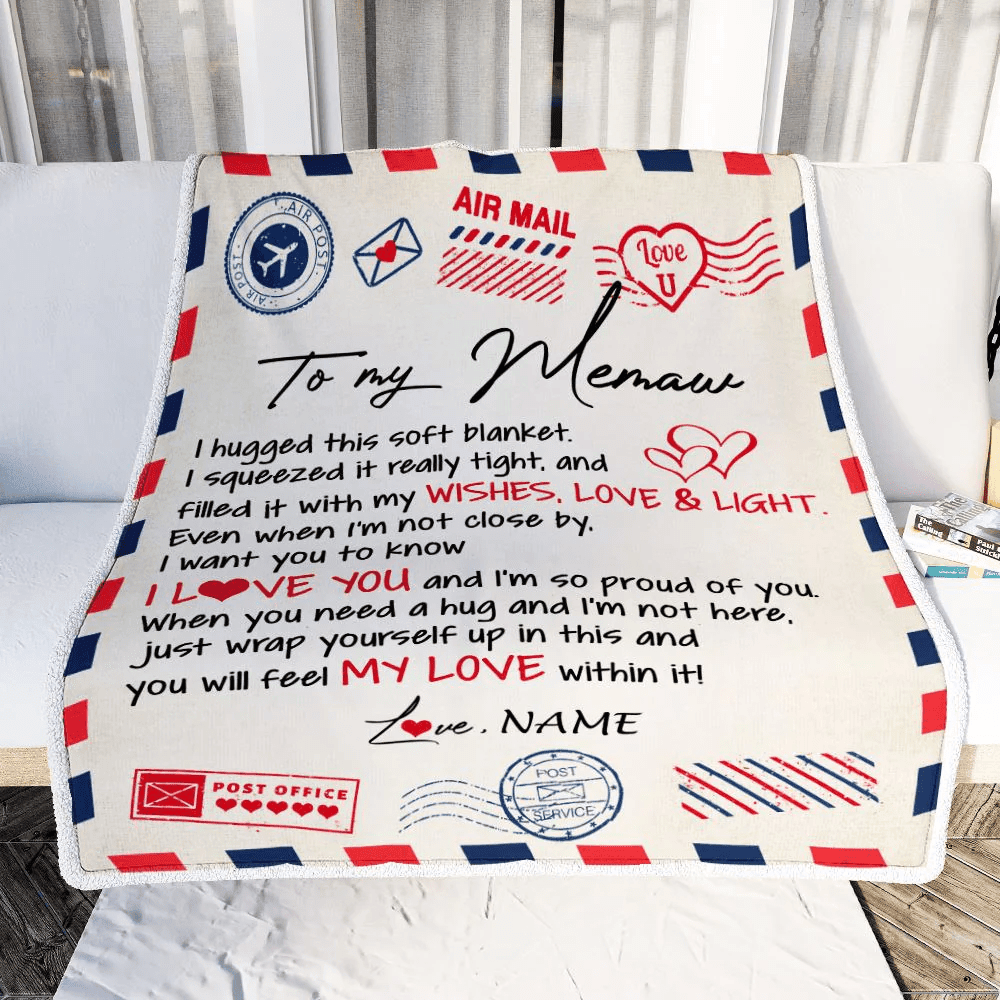 AIR POST
AIR POST
AIR MAIL
Love
U
To my Memaw
I hugged this soft blanket.
I squeezed it really tight, and
filled it with my WISHES, LOVE & LIGHT.
Even when I'm not close by,
I want you to know
I LOVE YOU and I'm so proud of you.
When you need a hug and I'm not here,
just wrap yourself up in this and
you will feel MY LOVE within it!
Love, NAME
POST OFFICE
POST
SERVICE
The
Calling
Paul